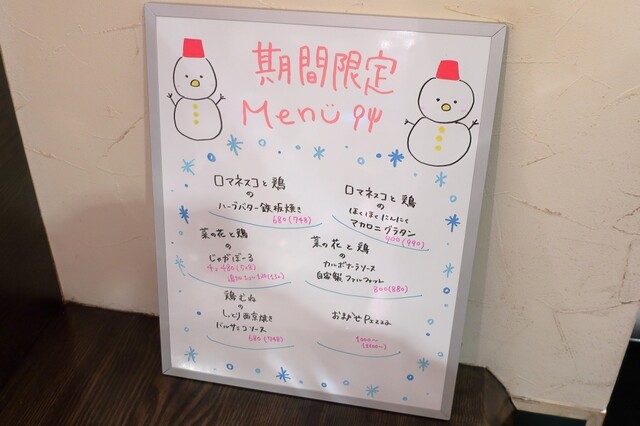 期間限定
Menü
ロマネスコと鶏
の
ハーブバター鉄板焼き
680(748)
ロマネスコと鶏
の
ほくほくにんにく
マカロニグラタン
900(990)
菜の花と鶏
の
じゃがぼーる
菜の花と鶏
の
カルボナーラソース
自家製
800(880)
鶏むね
の
しっとり西京焼き
バルサミコソース
680(748)
おまかせPizza